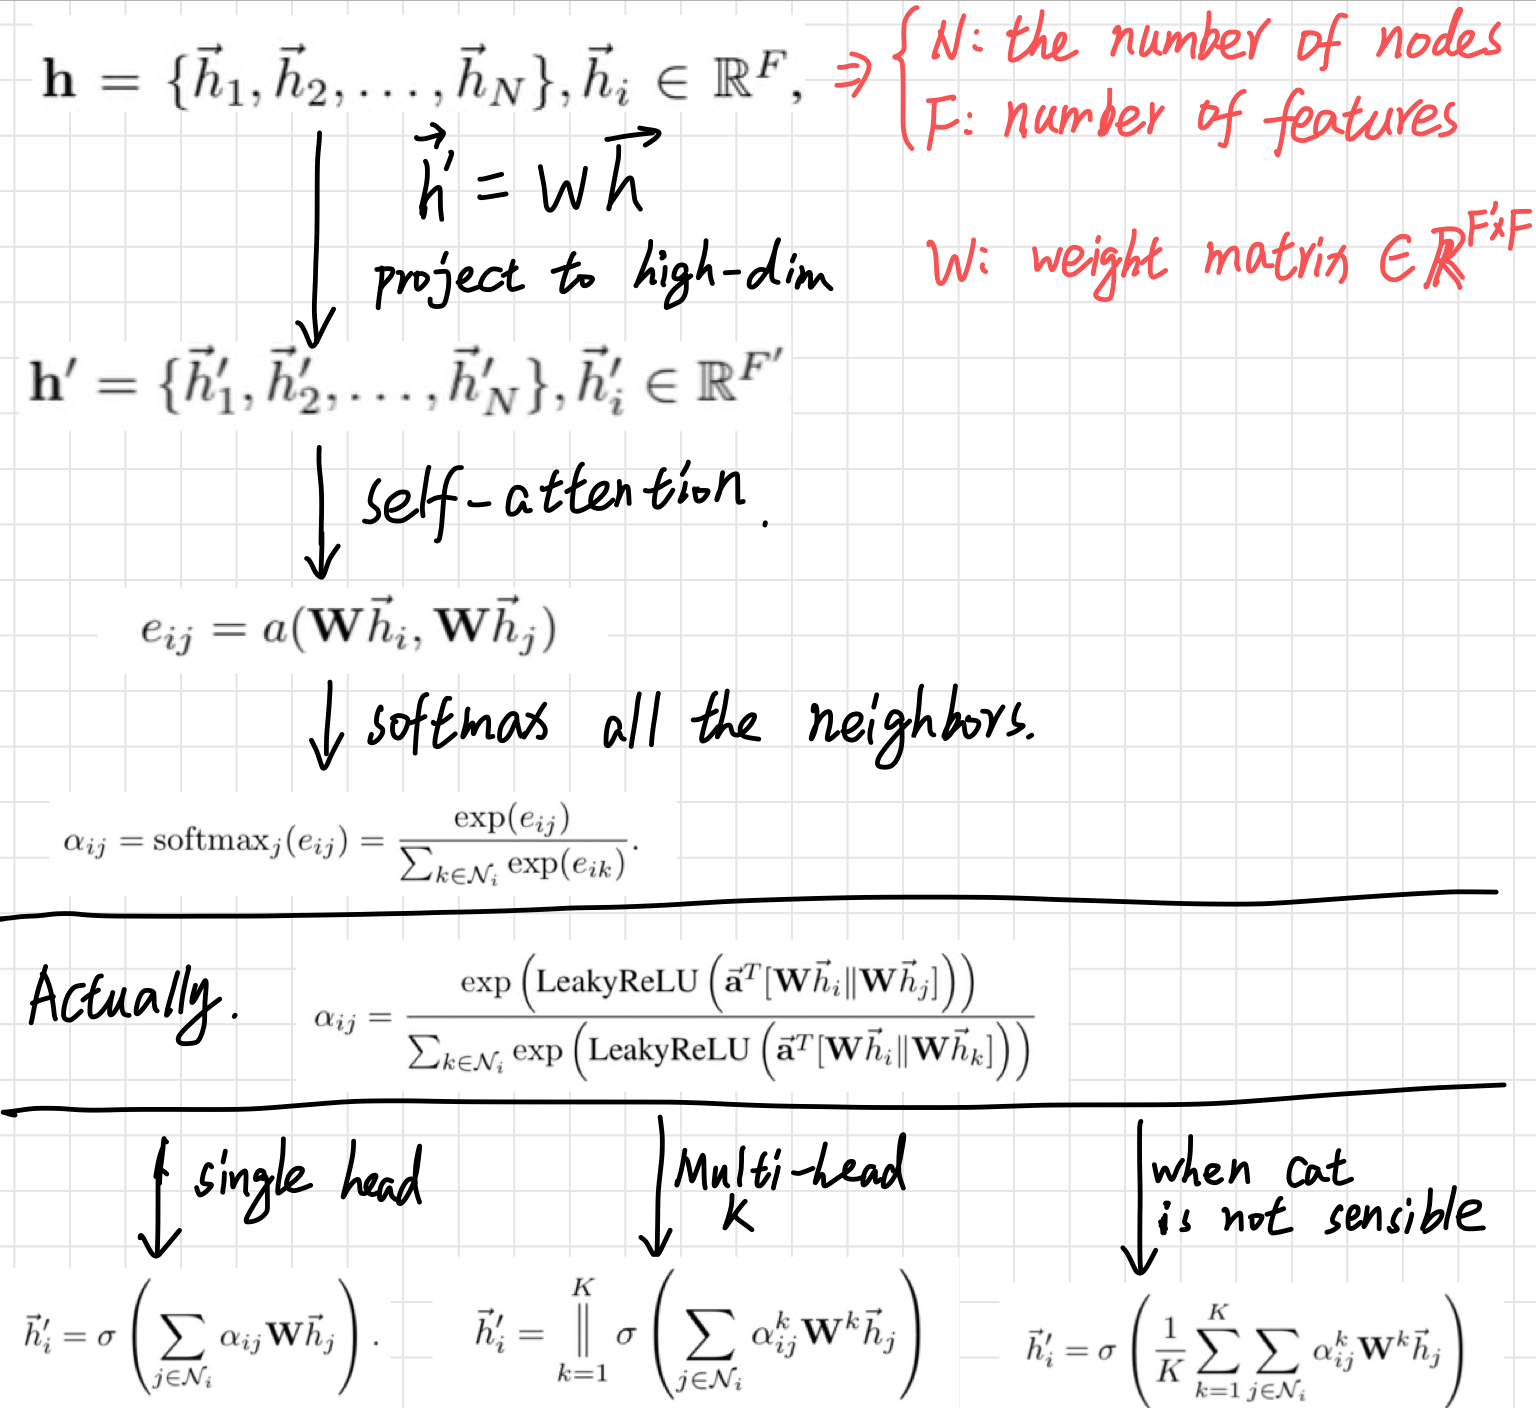 h = {h⃗₁, h⃗₂, . . . , h⃗_N}, h⃗ᵢ ∈ ℝ^F, ⇒ { N: the number of nodes
F: number of features
h⃗' = W h⃗
project to high-dim
W: weight matrix ∈ ℝ^{F'×F}
h′ = {h⃗′₁, h⃗′₂, . . . , h⃗′_N}, h⃗′ᵢ ∈ ℝ^{F′}
self-attention.
e_{ij} = a(Wh⃗ᵢ, Wh⃗ⱼ)
softmax all the neighbors.
α_{ij} = softmax_j(e_{ij}) = exp(e_{ij}) / ∑_{k∈𝒩ᵢ} exp(e_{ik}).
Actually. α_{ij} = exp(LeakyReLU(a⃗^T[Wh⃗ᵢ‖Wh⃗ⱼ])) / ∑_{k∈𝒩ᵢ} exp(LeakyReLU(a⃗^T[Wh⃗ᵢ‖Wh⃗ₖ]))
single head
h⃗′ᵢ = σ(∑_{j∈𝒩ᵢ} α_{ij}Wh⃗ⱼ).
Multi-head
K
h⃗′ᵢ = ‖_{k=1}^{K} σ(∑_{j∈𝒩ᵢ} α_{ij}^k W^k h⃗ⱼ)
when cat
is not sensible
h⃗′ᵢ = σ(1/K ∑_{k=1}^{K} ∑_{j∈𝒩ᵢ} α_{ij}^k W^k h⃗ⱼ)